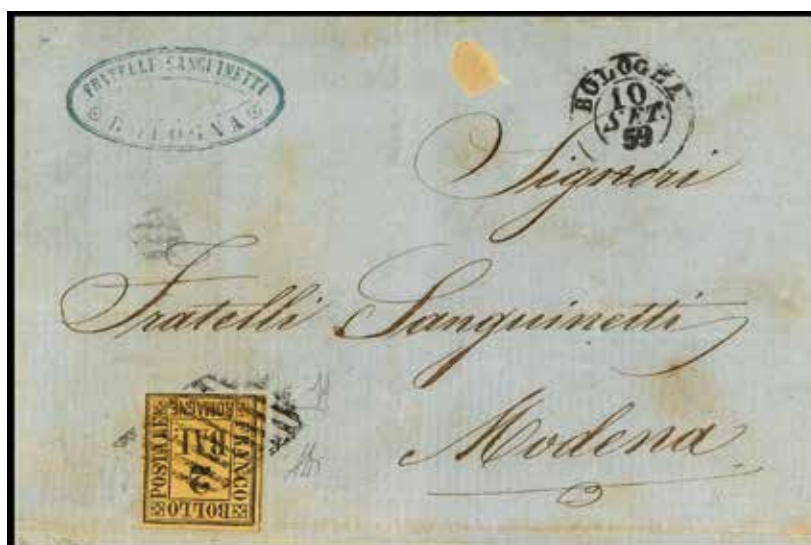 FRATELLI SANGUINETTI
BOLOGNA
BOLOGNA
10
SET.
59
Signori
Fratelli Sanguinetti
Modena
FRANCO
BOLLO
POSTALE
ROMAGNE
BAI
2